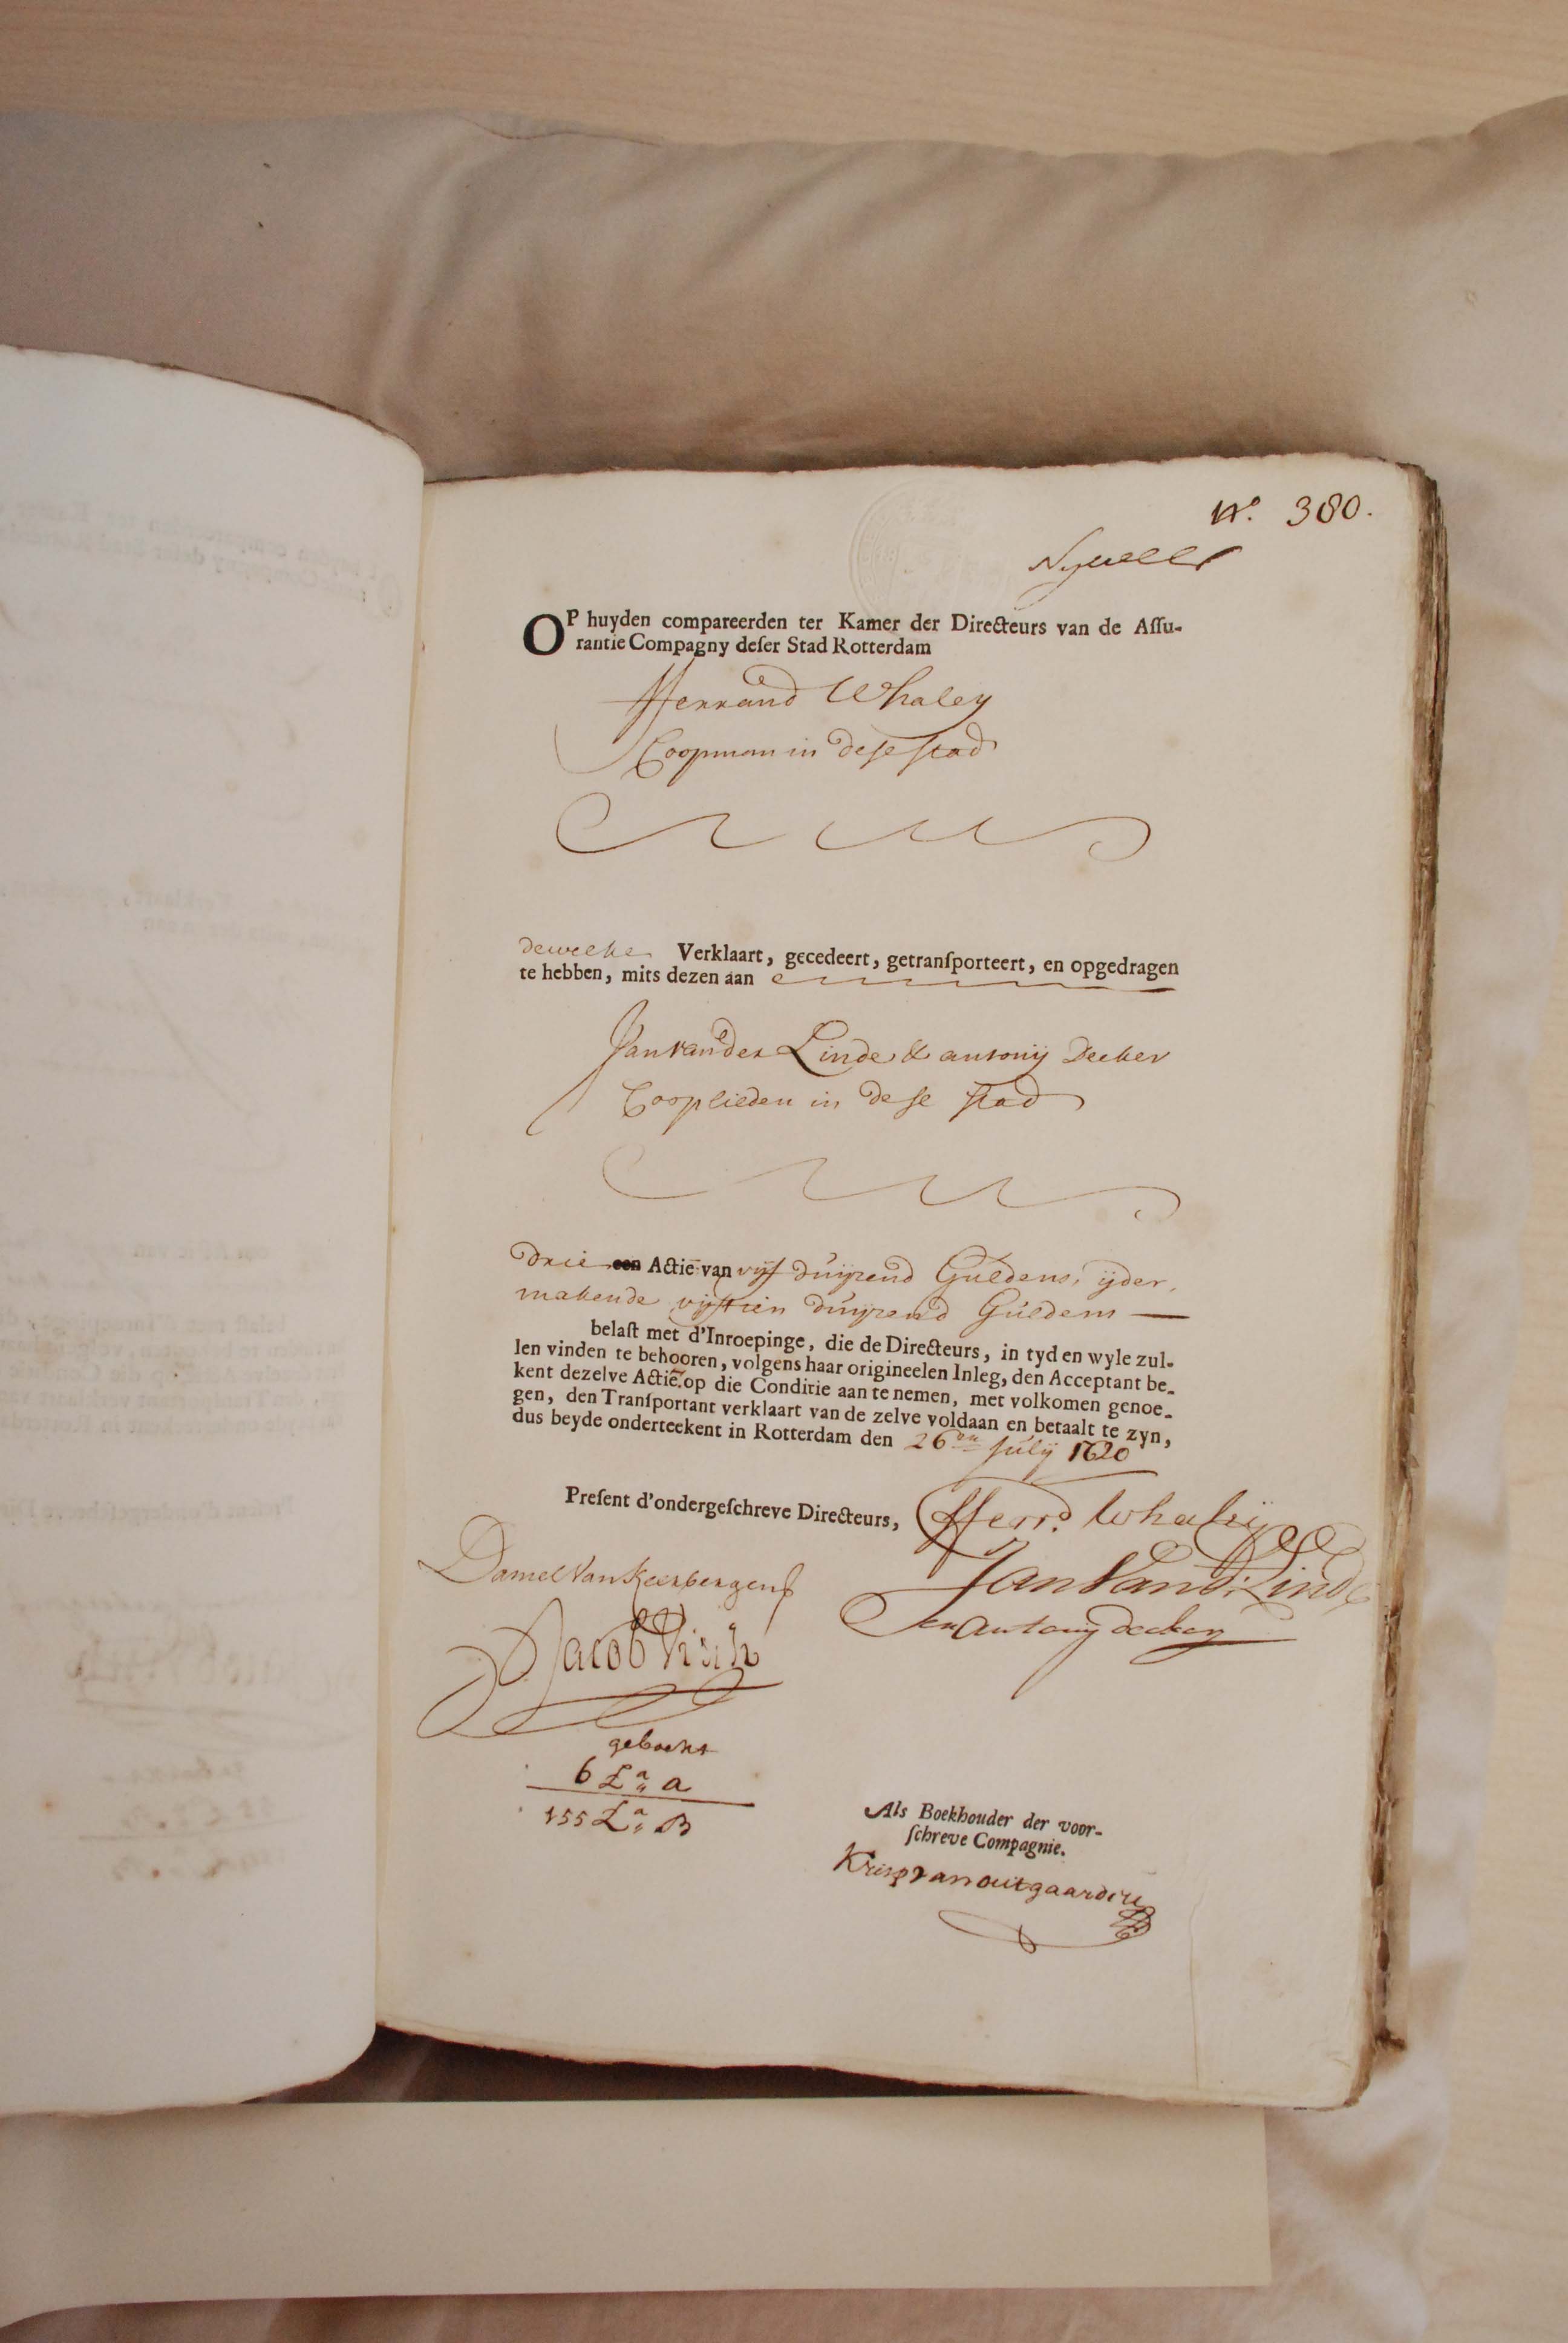 N.º 380.
OP huyden compareerden ter Kamer der Directeurs van de Aſſu-
rantie Compagny deſer Stad Rotterdam
Herrand Whaley
Coopman in deſe ſtad
dewelke Verklaart, gecedeert, getranſporteert, en opgedragen
te hebben, mits dezen aan
Jan vander Linde & antonij Decker
Cooplieden in deſe ſtad
drie een Actie van vijf duijzend Guldens, ijder,
makende vijftien duijzend Guldens
belaſt met d'Inroepinge, die de Directeurs, in tyd en wyle zul-
len vinden te behooren, volgens haar origineelen Inleg, den Acceptant be-
kent dezelve Actie op die Conditie aan te nemen, met volkomen genoe-
gen, den Tranſportant verklaart van de zelve voldaan en betaalt te zyn,
dus beyde onderteekent in Rotterdam den 26en Julij 1720
Preſent d'ondergeſchreve Directeurs,
Herrd. Whaley
Daniel Van Keerbergen
Jan Van d. Linde
Jacob Visch
en Antony decker
geboekt
6 La. a
155 La. B
Als Boekhouder der voor-
ſchreve Compagnie.
Krisp van outgaarden